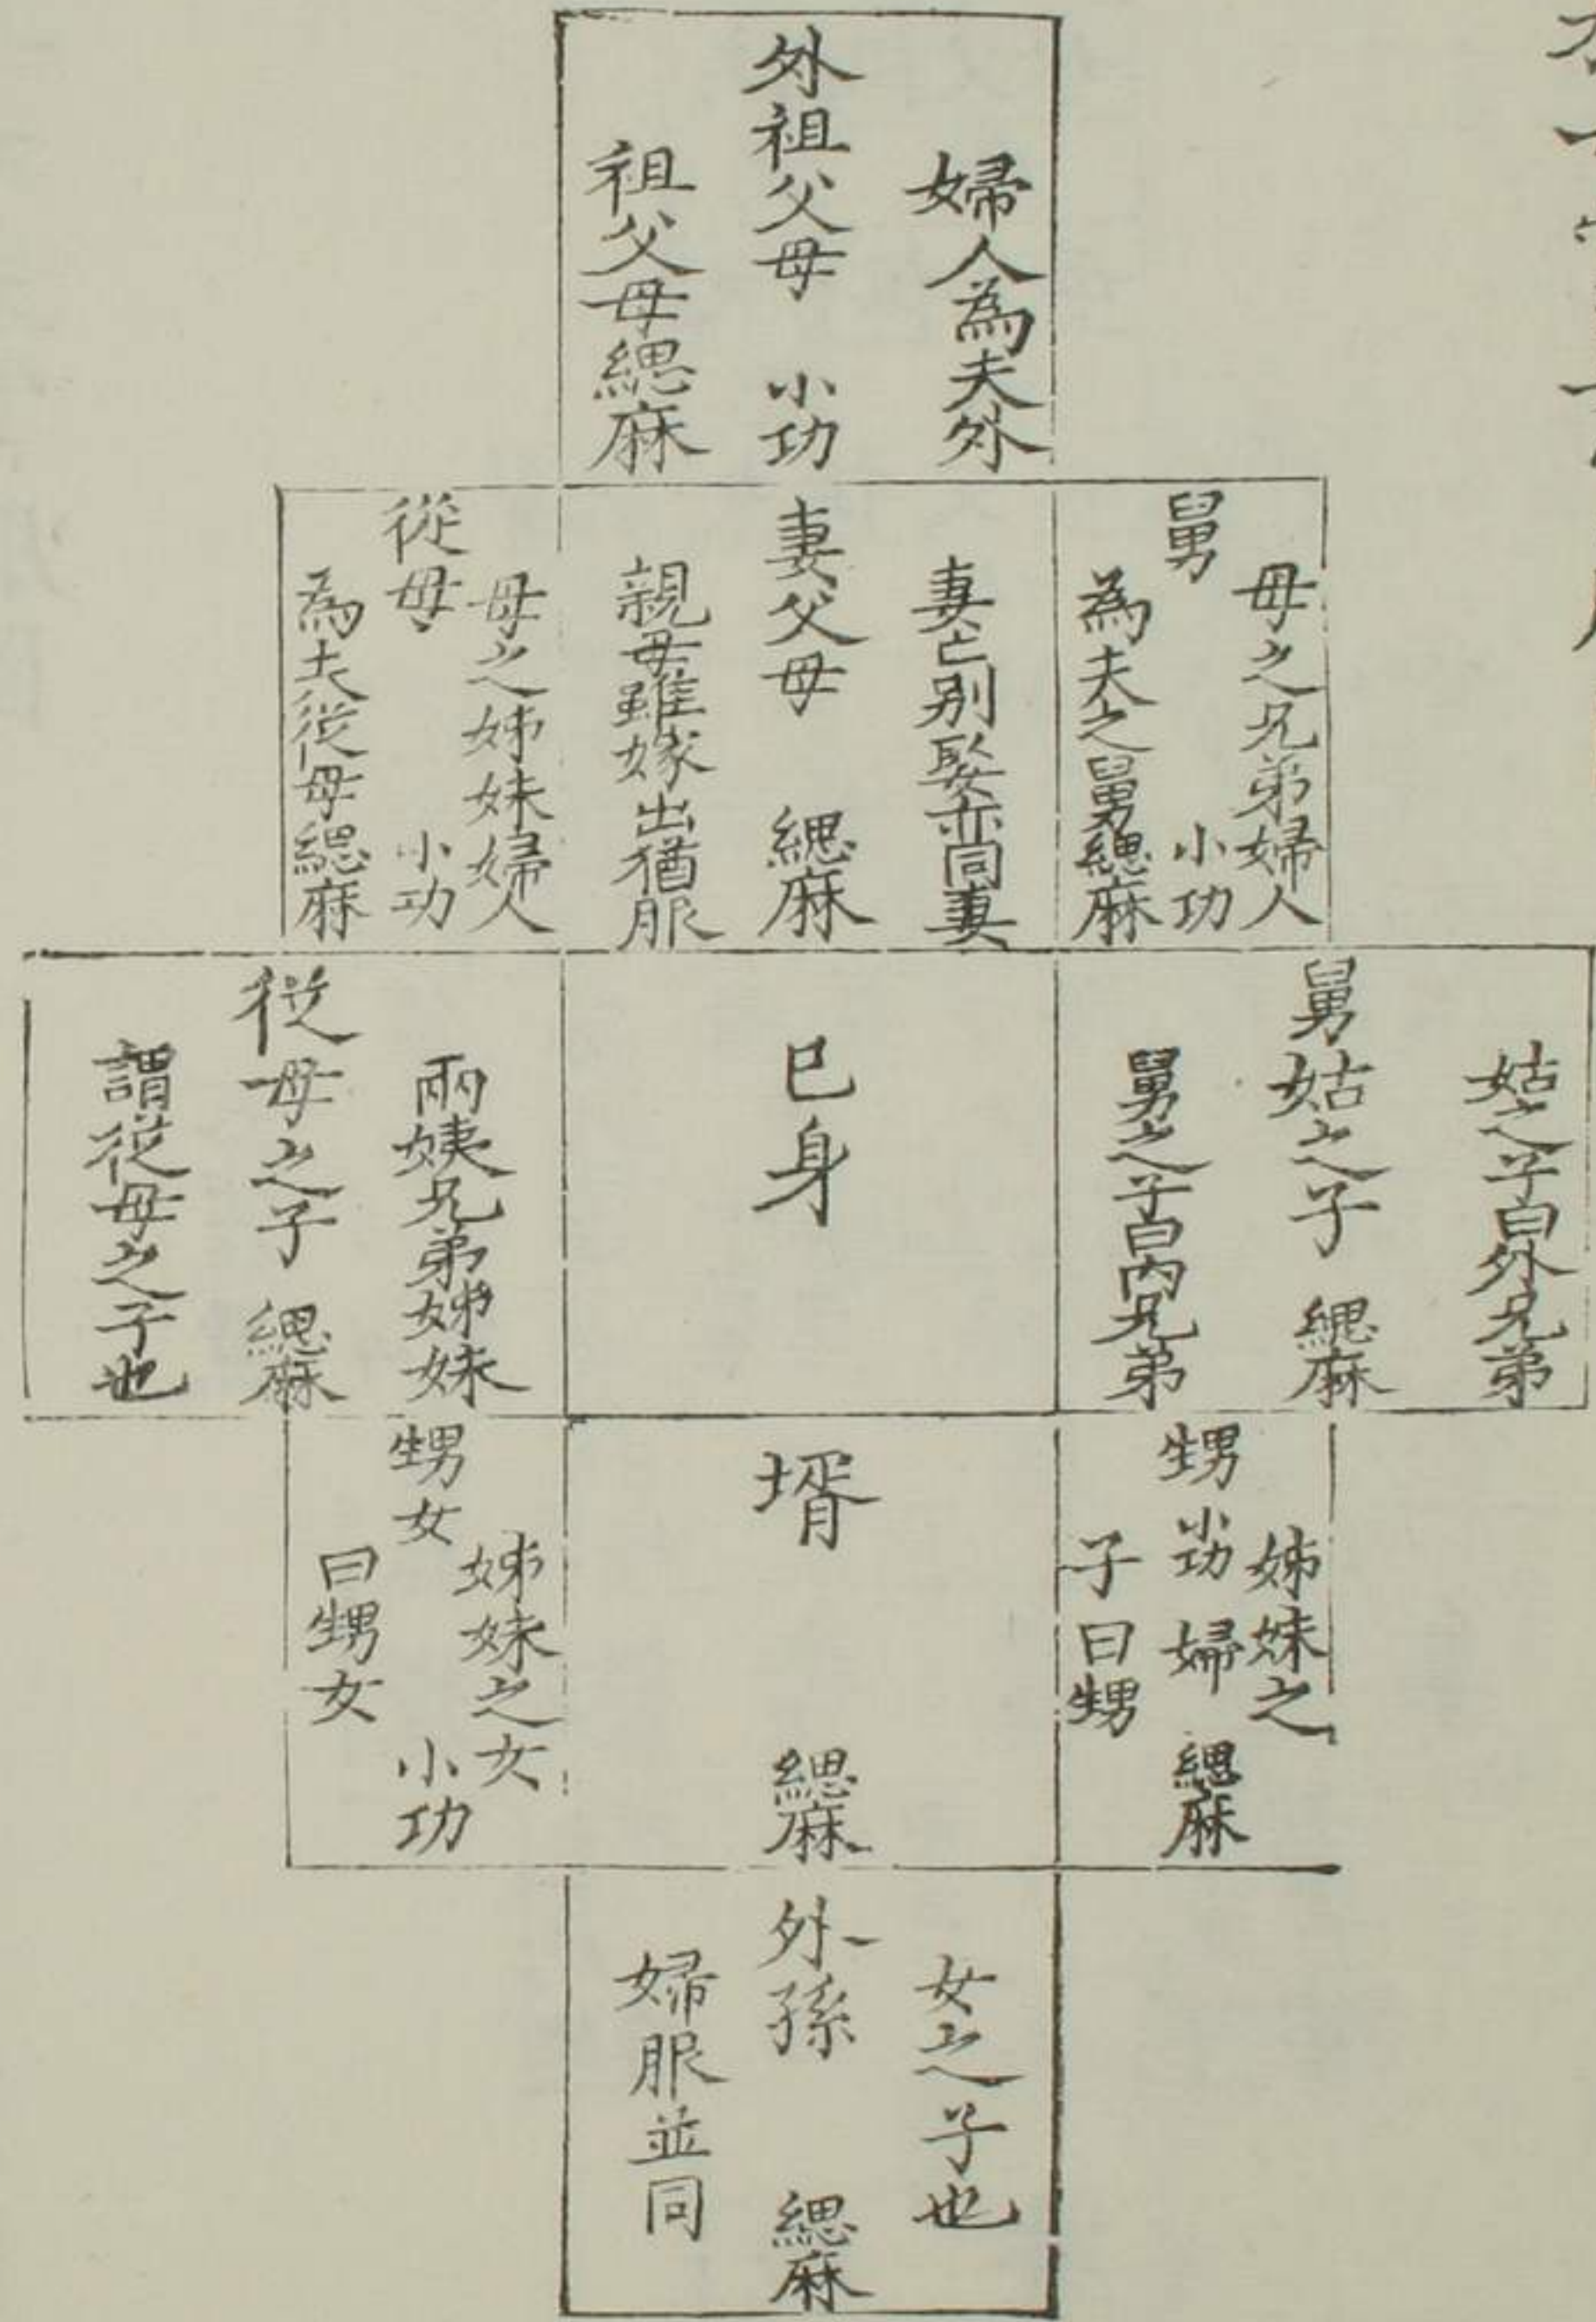 婦人為夫外
外祖父母 小功
祖父母緦麻
母之兄弟婦人
舅 小功
為夫之舅緦麻
妻亡別娶亦同妻
妻父母 緦麻
親母雖嫁出猶服
母之姊妹婦人
從母 小功
為夫從母緦麻
姑之子曰外兄弟
舅姑之子 緦麻
舅之子曰內兄弟
己身
兩姨兄弟姊妹
從母之子 緦麻
謂從母之子也
姊妹之
甥 小功 婦 緦麻
子曰甥
壻 緦麻
姊妹之女
甥女 小功
曰甥女
女之子也
外孫 緦麻
婦服並同